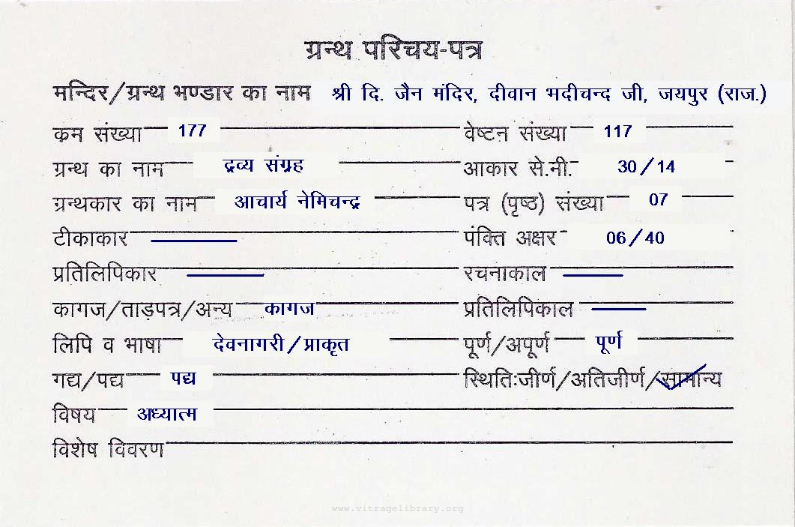 ग्रन्थ परिचय-पत्र
मन्दिर/ग्रन्थ भण्डार का नाम श्री दि. जैन मंदिर, दीवान भदीचन्द जी, जयपुर (राज.)
कम संख्या 177 वेष्टन संख्या 117
ग्रन्थ का नाम द्रव्य संग्रह आकार से.मी. 30/14
ग्रन्थकार का नाम आचार्य नेमिचन्द्र पत्र (पृष्ठ) संख्या 07
टीकाकार —— पंक्ति अक्षर 06/40
प्रतिलिपिकार —— रचनाकाल ——
कागज/ताड़पत्र/अन्य कागज प्रतिलिपिकाल ——
लिपि व भाषा देवनागरी/प्राकृत पूर्ण/अपूर्ण पूर्ण
गद्य/पद्य पद्य स्थितिःजीर्ण/अतिजीर्ण/सामान्य
विषय अध्यात्म
विशेष विवरण
www.vitragelibrary.org